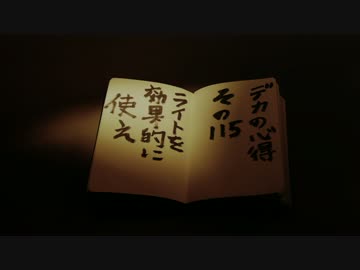 デカの心得
その115
ライトを
効果的に
使え